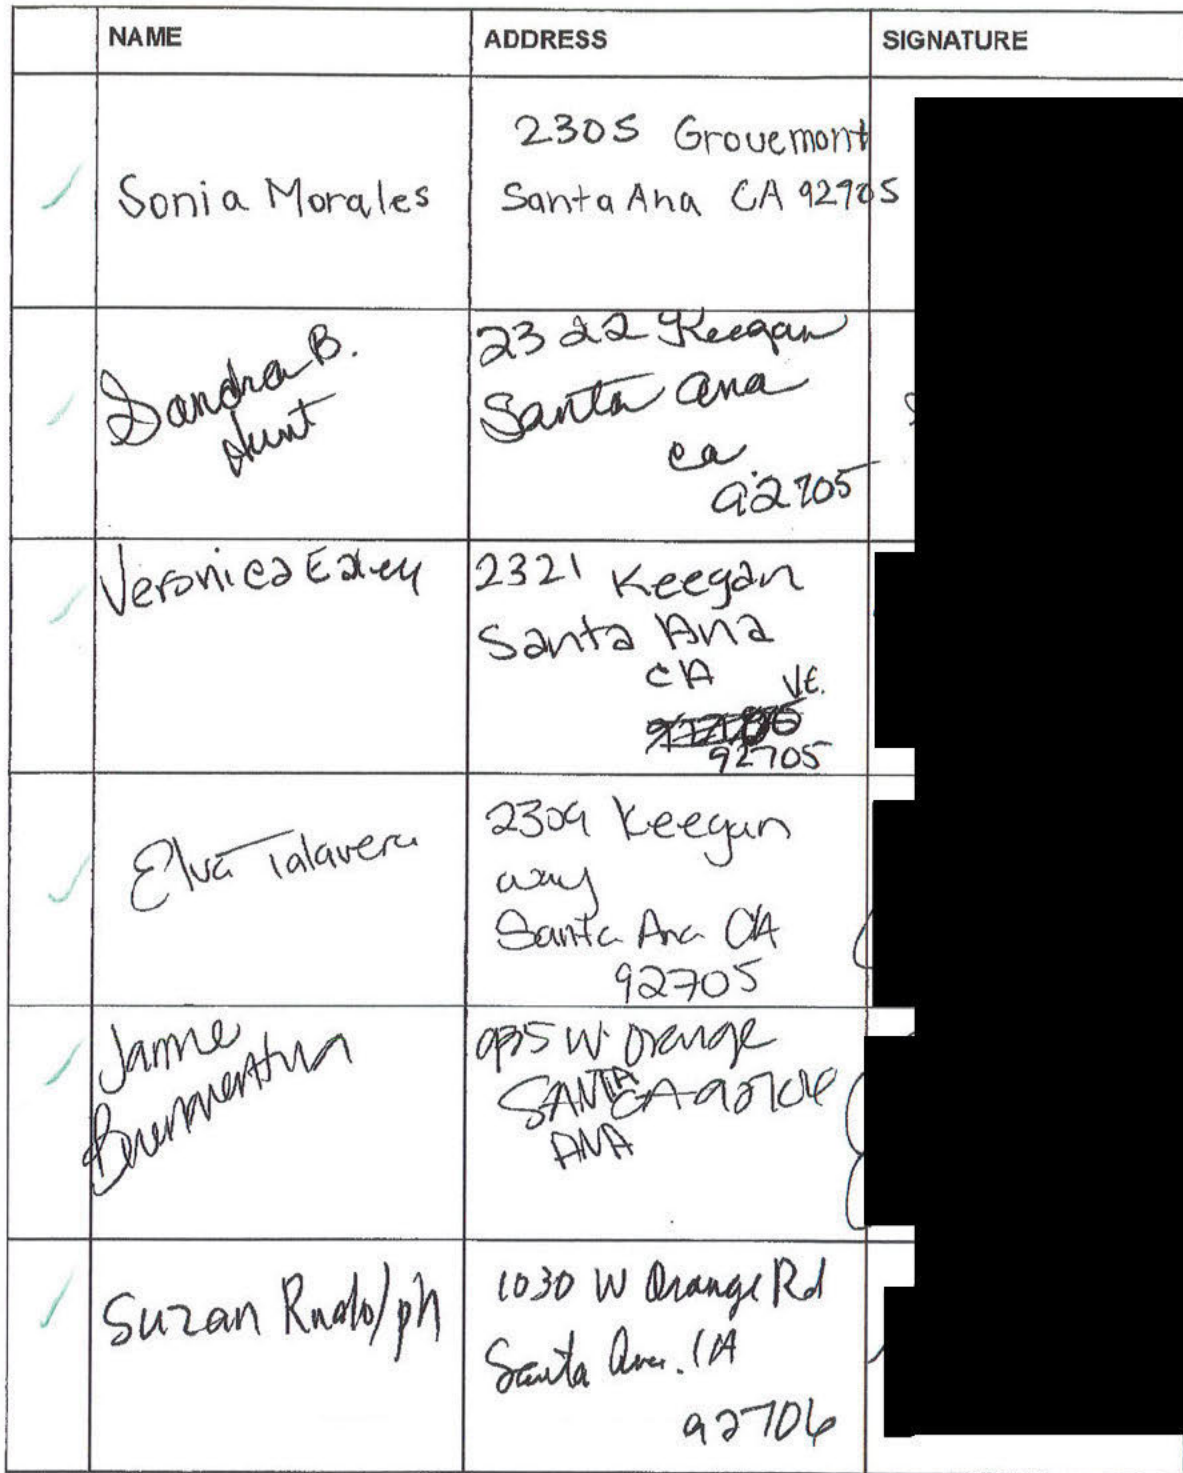 NAME ADDRESS SIGNATURE
2305 Grovemont
Sonia Morales Santa Ana CA 92705
Sandra B.
Hunt
2322 Keegan
Santa Ana
Ca
92705
Veronica Ealey
2321 Keegan
Santa Ana
CA
V.E.
92705
Elva Talavera
2309 Keegan
way
Santa Ana CA
92705
Jaime
935 W. Orange
SANTA CA 92706
ANA
Suzan Rudolph
1030 W Orange Rd
Santa Ana. CA
92706